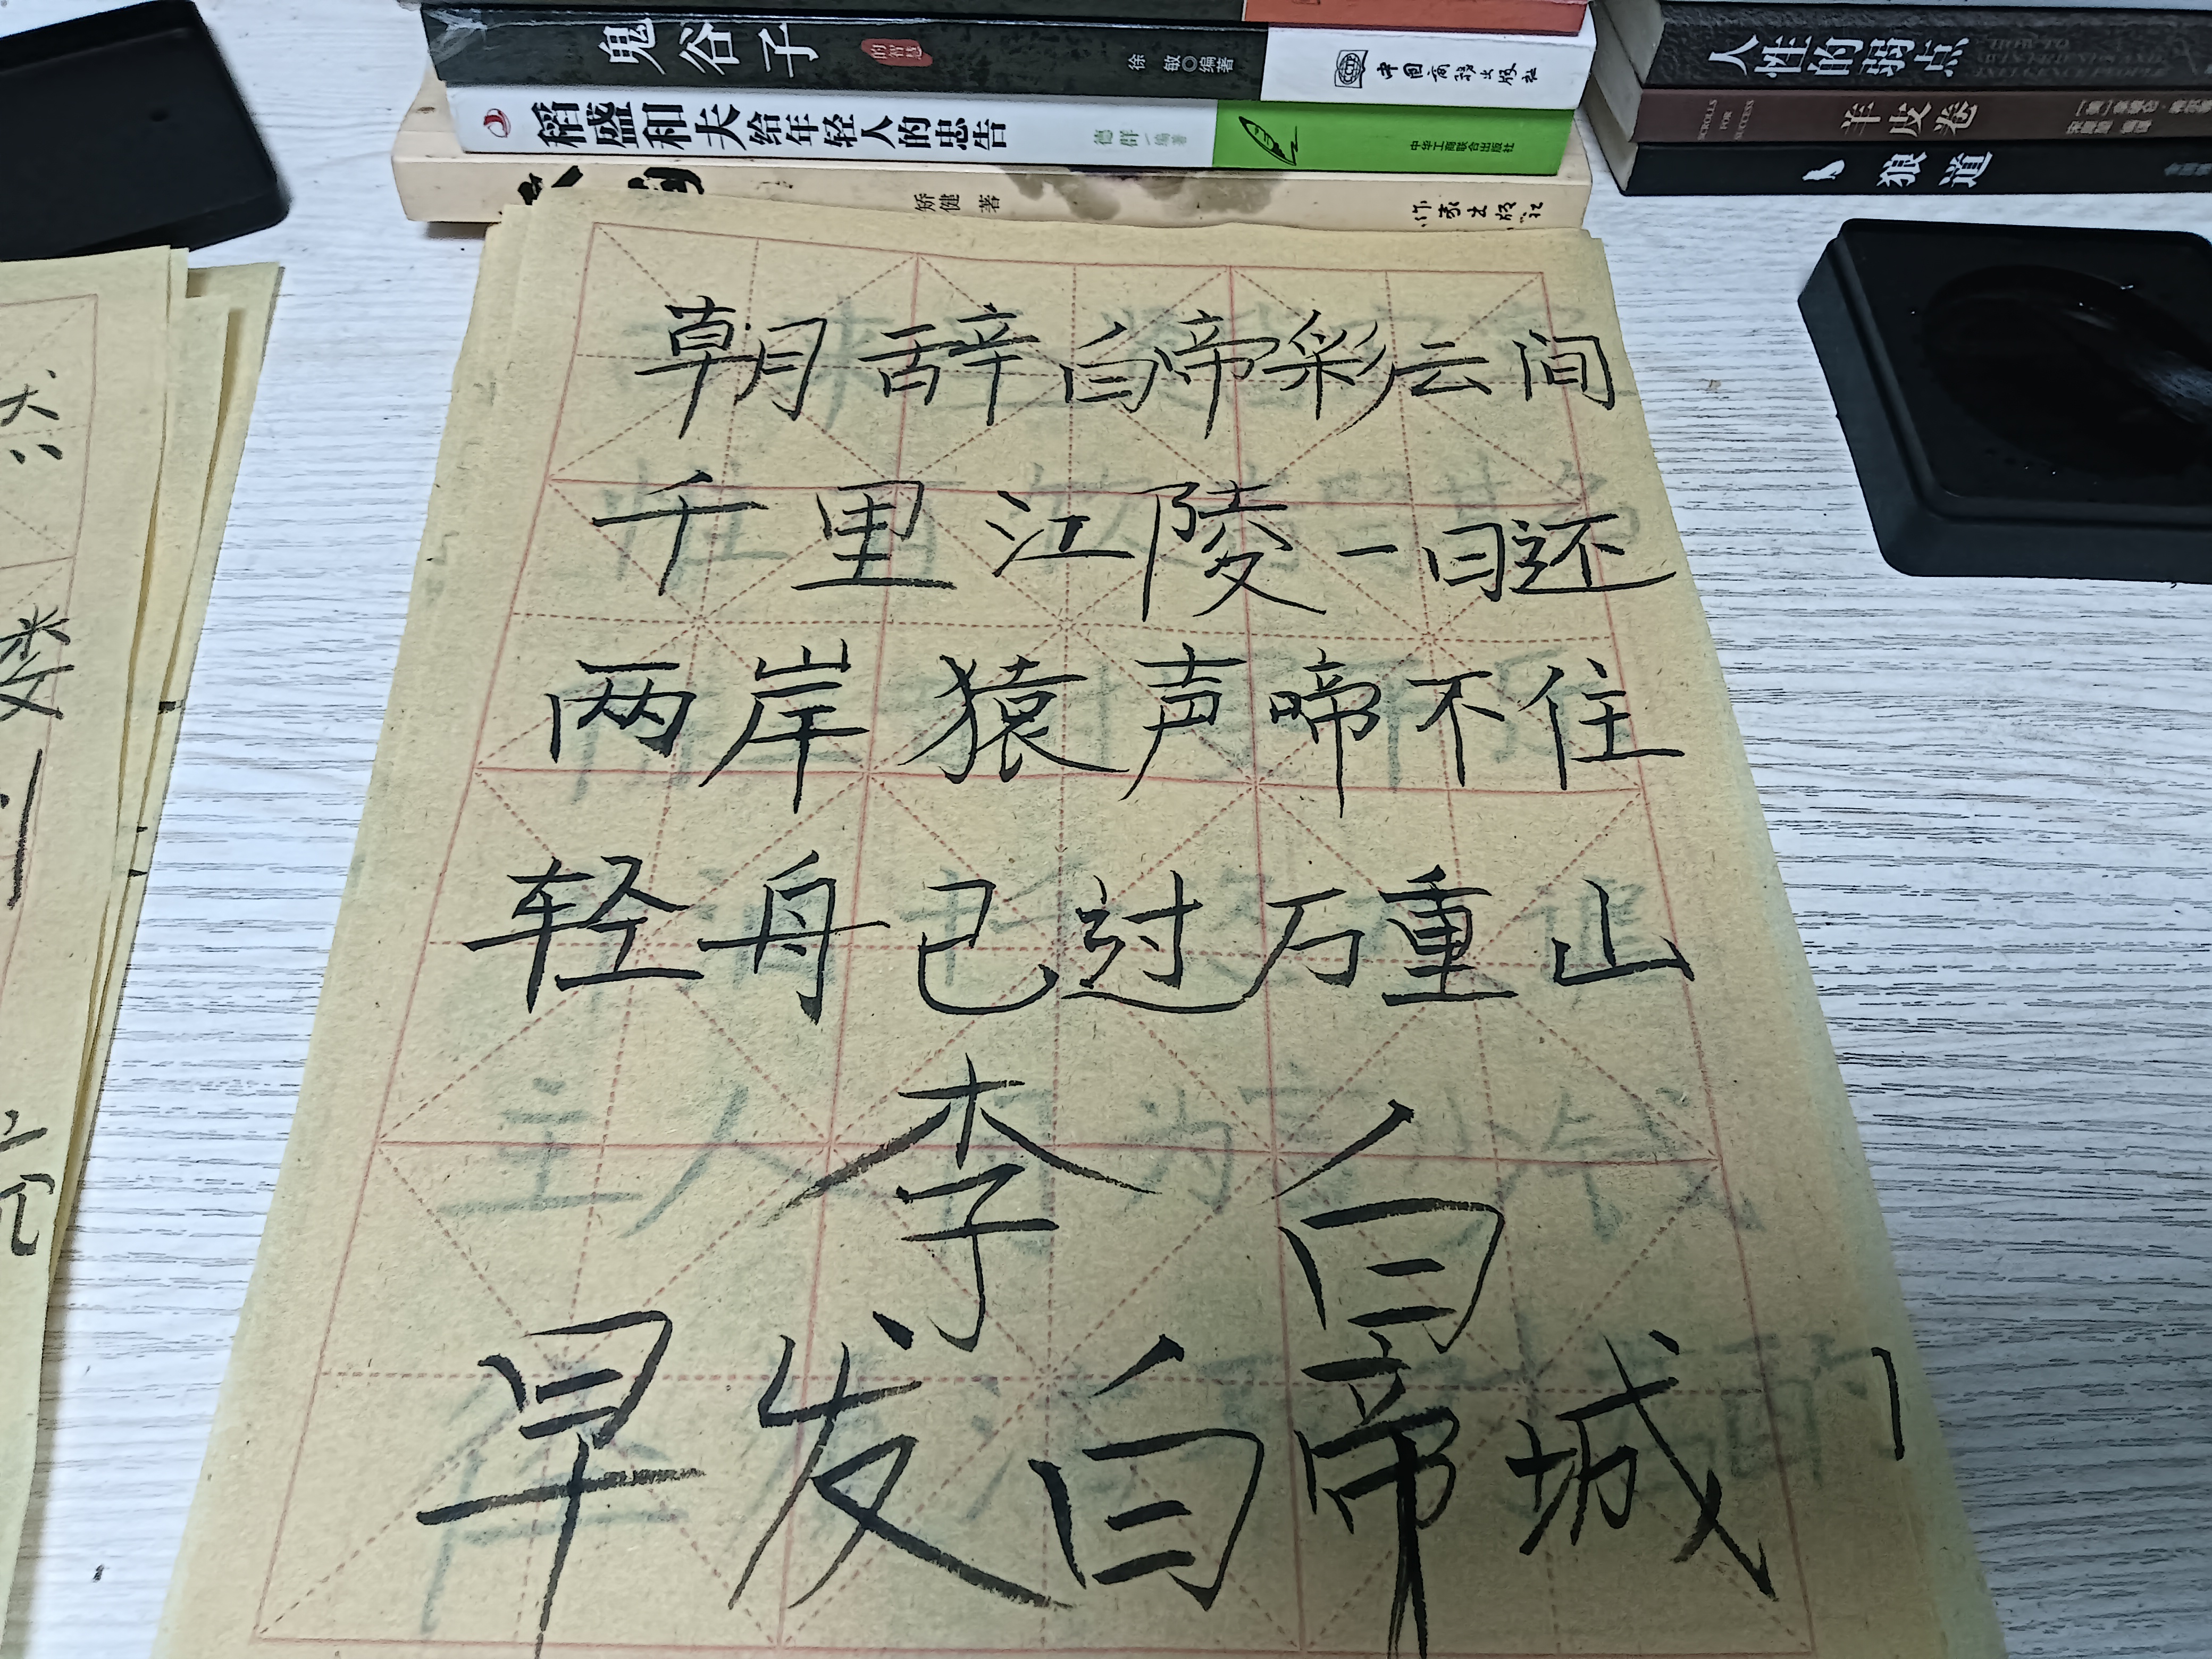 鬼谷子 的智慧 徐敏◎编著 中国商务出版社
稻盛和夫给年轻人的忠告 德群 编著 中华工商联合出版社
矫健 著 作家出版社
人性的弱点
SCROLLS FOR SUCCESS 羊皮卷
狼道
朝辞白帝彩云间
千里江陵一日还
两岸猿声啼不住
轻舟已过万重山
李白
早发白帝城